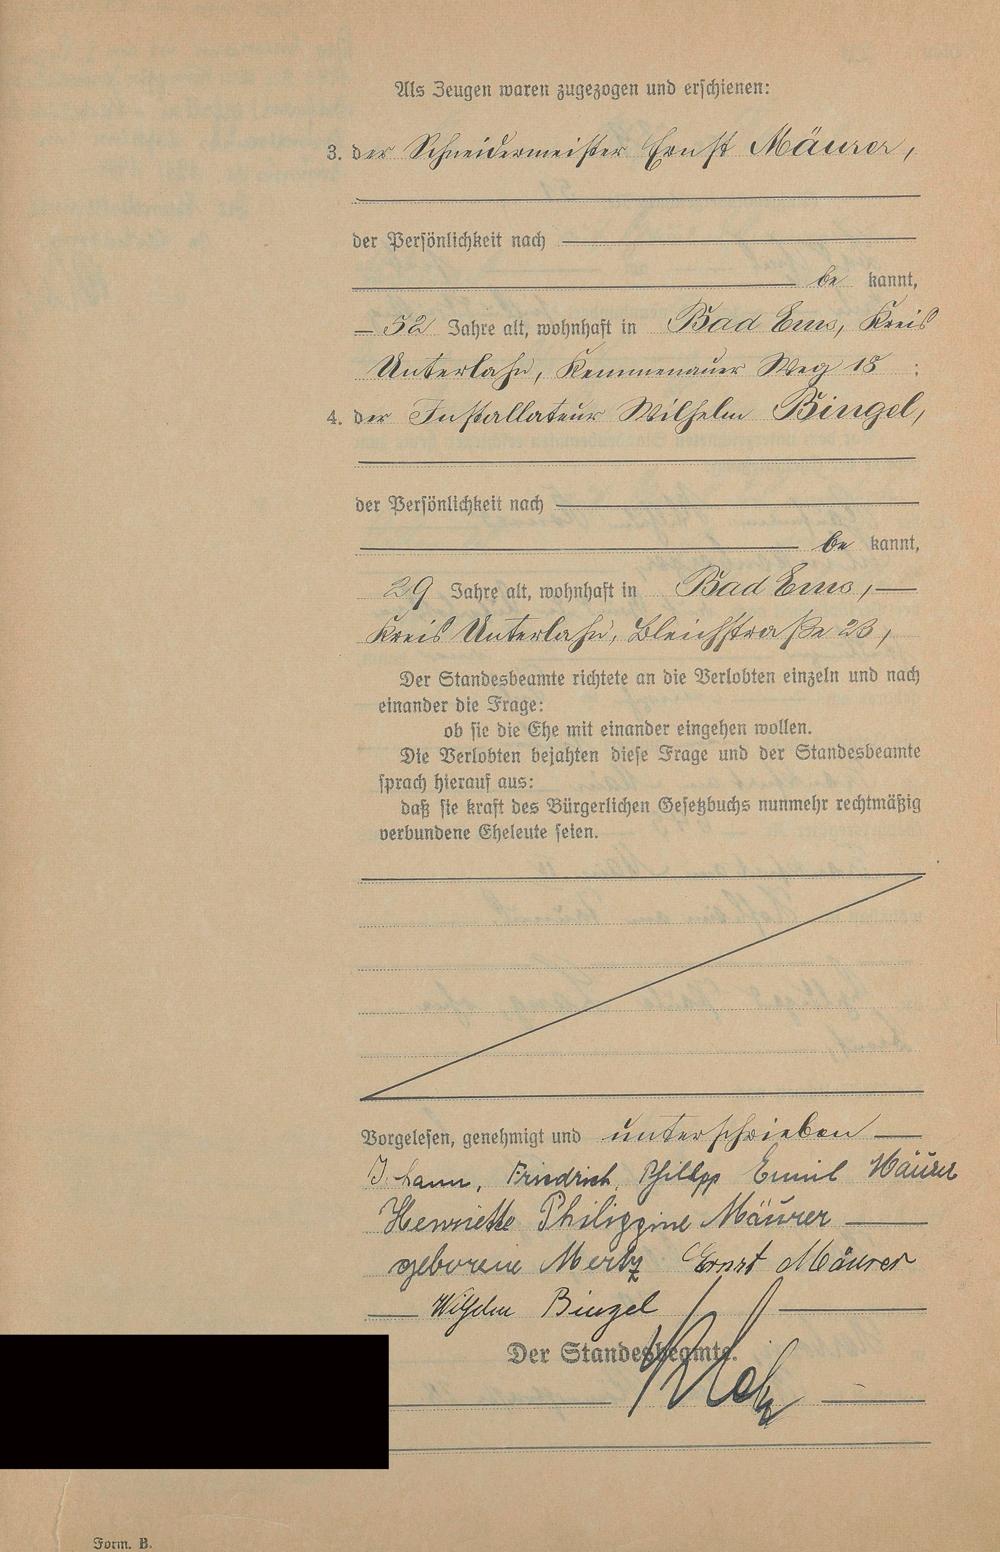 Als Zeugen waren zugezogen und erschienen:
3. der Schneidermeister Ernst Mäurer,
der Persönlichkeit nach
be kannt,
52 Jahre alt, wohnhaft in Bad Ems, Kreis
Unterlahn, Kemmenauer Weg 18 ;
4. der Installateur Wilhelm Bingel,
der Persönlichkeit nach
be kannt,
29 Jahre alt, wohnhaft in Bad Ems,
Kreis Unterlahn, Bleichstraße 23,
Der Standesbeamte richtete an die Verlobten einzeln und nach
einander die Frage:
ob sie die Ehe mit einander eingehen wollen.
Die Verlobten bejahten diese Frage und der Standesbeamte
sprach hierauf aus:
daß sie kraft des Bürgerlichen Gesetzbuchs nunmehr rechtmäßig
verbundene Eheleute seien.
Vorgelesen, genehmigt und unterschrieben
Johann, Friedrich, Philipp Emil Mäurer
Henriette Philippine Mäurer
geborene Mertz Ernst Mäurer
Wilhelm Bingel
Der Standesbeamte.
Form. B.